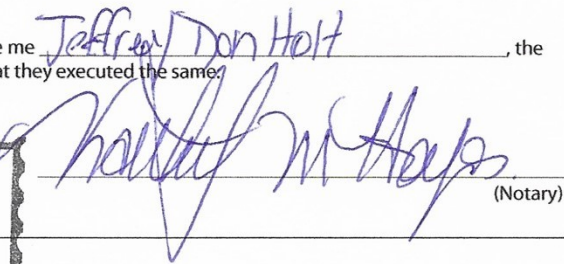 e me Jeffrey Don Holt, the
at they executed the same.
M Hayes
(Notary)